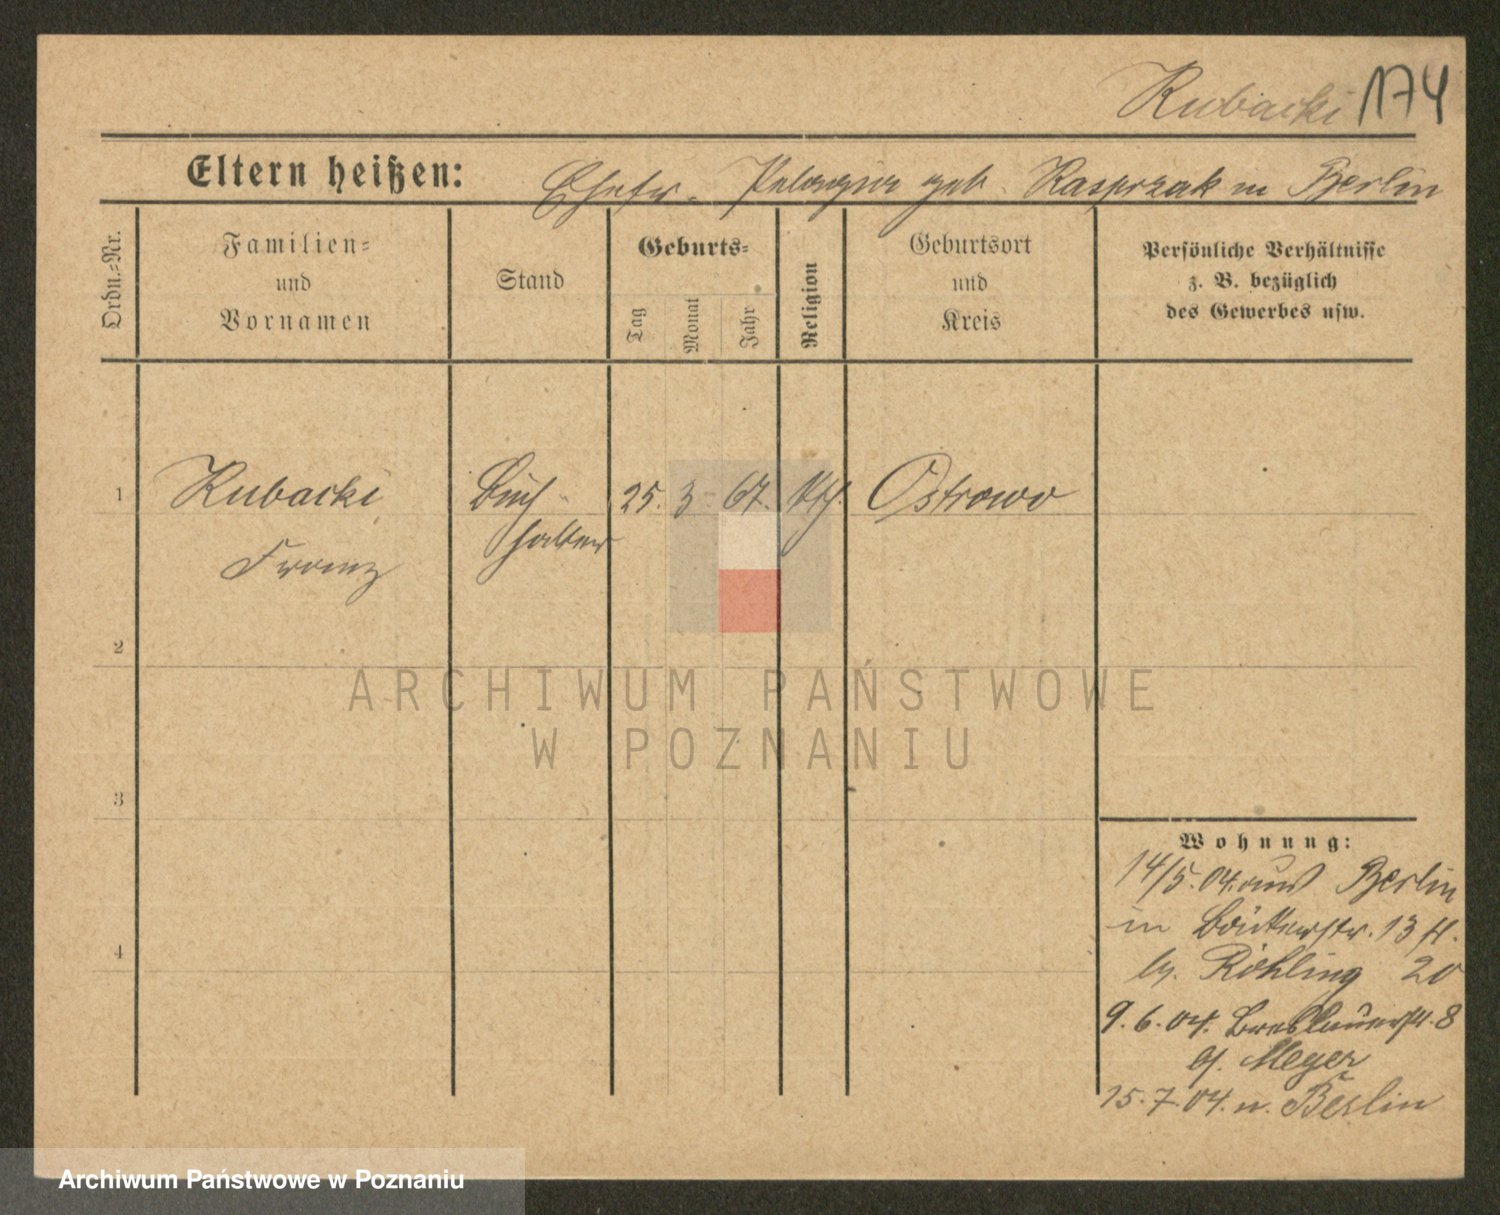 Rubacki 174
Eltern heißen: Ehefr. Pelagia geb. Kasprzak in Berlin
Ordn.=Nr.
Familien=
und
Vornamen
Stand
Geburts=
Tag
Monat
Jahr
Religion
Geburtsort
und
Kreis
Persönliche Verhältnisse
z. B. bezüglich
des Gewerbes usw.
1 Rubacki Buch- 25. 3. 67. kth. Ostrowo
Franz halter
2
3
4
Wohnung:
14/5. 04. aus Berlin
in 13
b. Röhling 20
9. 6. 04. Breslauerstr. 8
b. Meyer
15. 7. 04. n. Berlin
ARCHIWUM PAŃSTWOWE
W POZNANIU
Archiwum Państwowe w Poznaniu